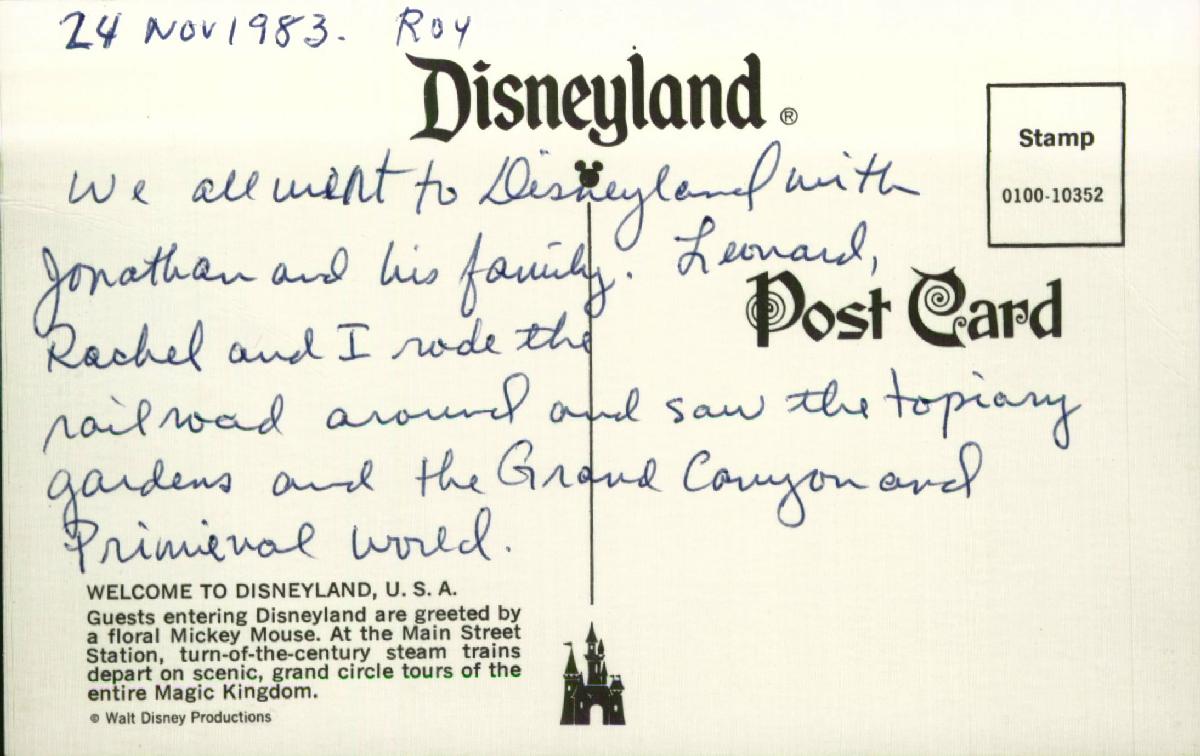 24 Nov 1983. Roy
Disneyland ®
Stamp
0100-10352
We all went to Disneyland with
Jonathan and his family. Leonard,
Post Card
Rachel and I rode the
railroad around and saw the topiary
gardens and the Grand Canyon and
Primieval World.
WELCOME TO DISNEYLAND, U. S. A.
Guests entering Disneyland are greeted by
a floral Mickey Mouse. At the Main Street
Station, turn-of-the-century steam trains
depart on scenic, grand circle tours of the
entire Magic Kingdom.
© Walt Disney Productions